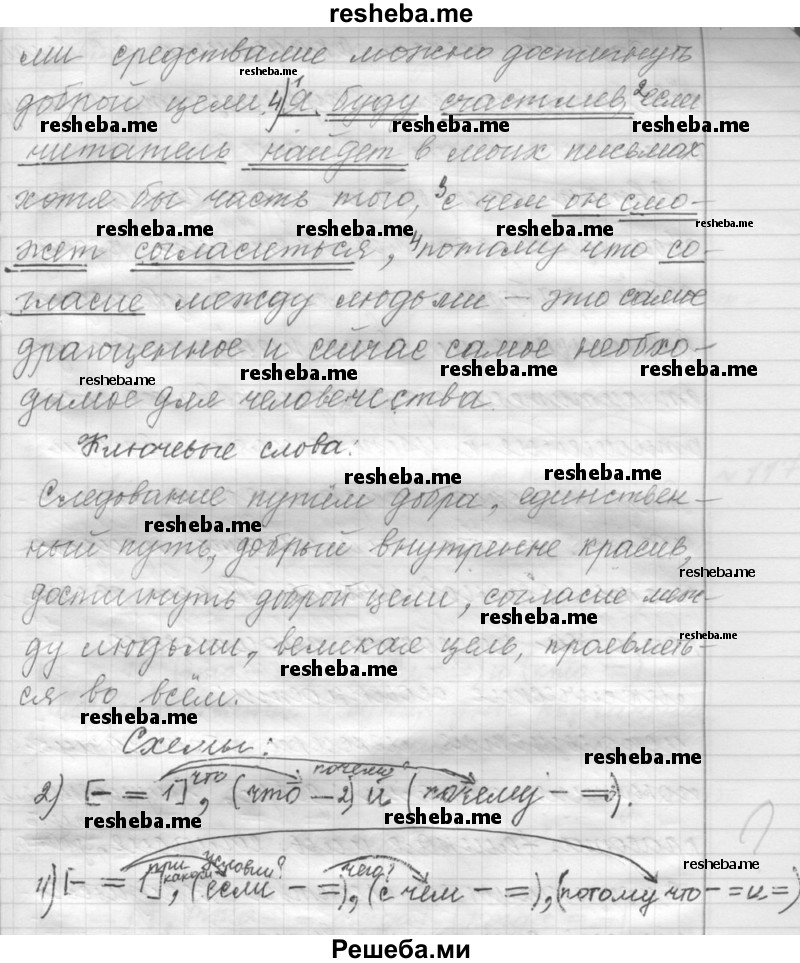 resheba.me
ми средствами можно достигнуть
resheba.me
доброй цели. 4) ¹Я буду счастлив, ²если
resheba.me resheba.me resheba.me
читатель найдет в моих письмах
хотя бы часть того, ³с чем он смо-
resheba.me resheba.me resheba.me
жет согласиться, ⁴потому что со-
гласие между людьми – это самое
драгоценное и сейчас самое необхо-
resheba.me resheba.me resheba.me resheba.me
димое для человечества.
Ключевые слова:
resheba.me resheba.me
Следование путём добра, единствен-
resheba.me
ный путь, добрый внутренне красив,
resheba.me
достигнуть доброй цели, согласие меж-
ду людьми, великая цель, проявлять-
resheba.me resheba.me
ся во всём.
resheba.me
Схемы:
resheba.me
что почему?
2) [– = 1], (что – 2) и (почему – =).
resheba.me resheba.me
при каком условии? чего?
resheba.me
4) [– = 1], (если – =), (с чем – =), (потому что – = и =)
Решеба.ми